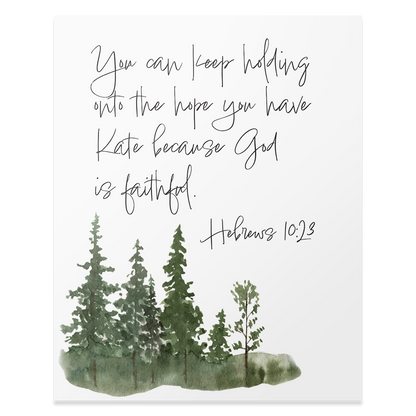 You can keep holding
onto the hope you have
Kate because God
is faithful.
Hebrews 10:23